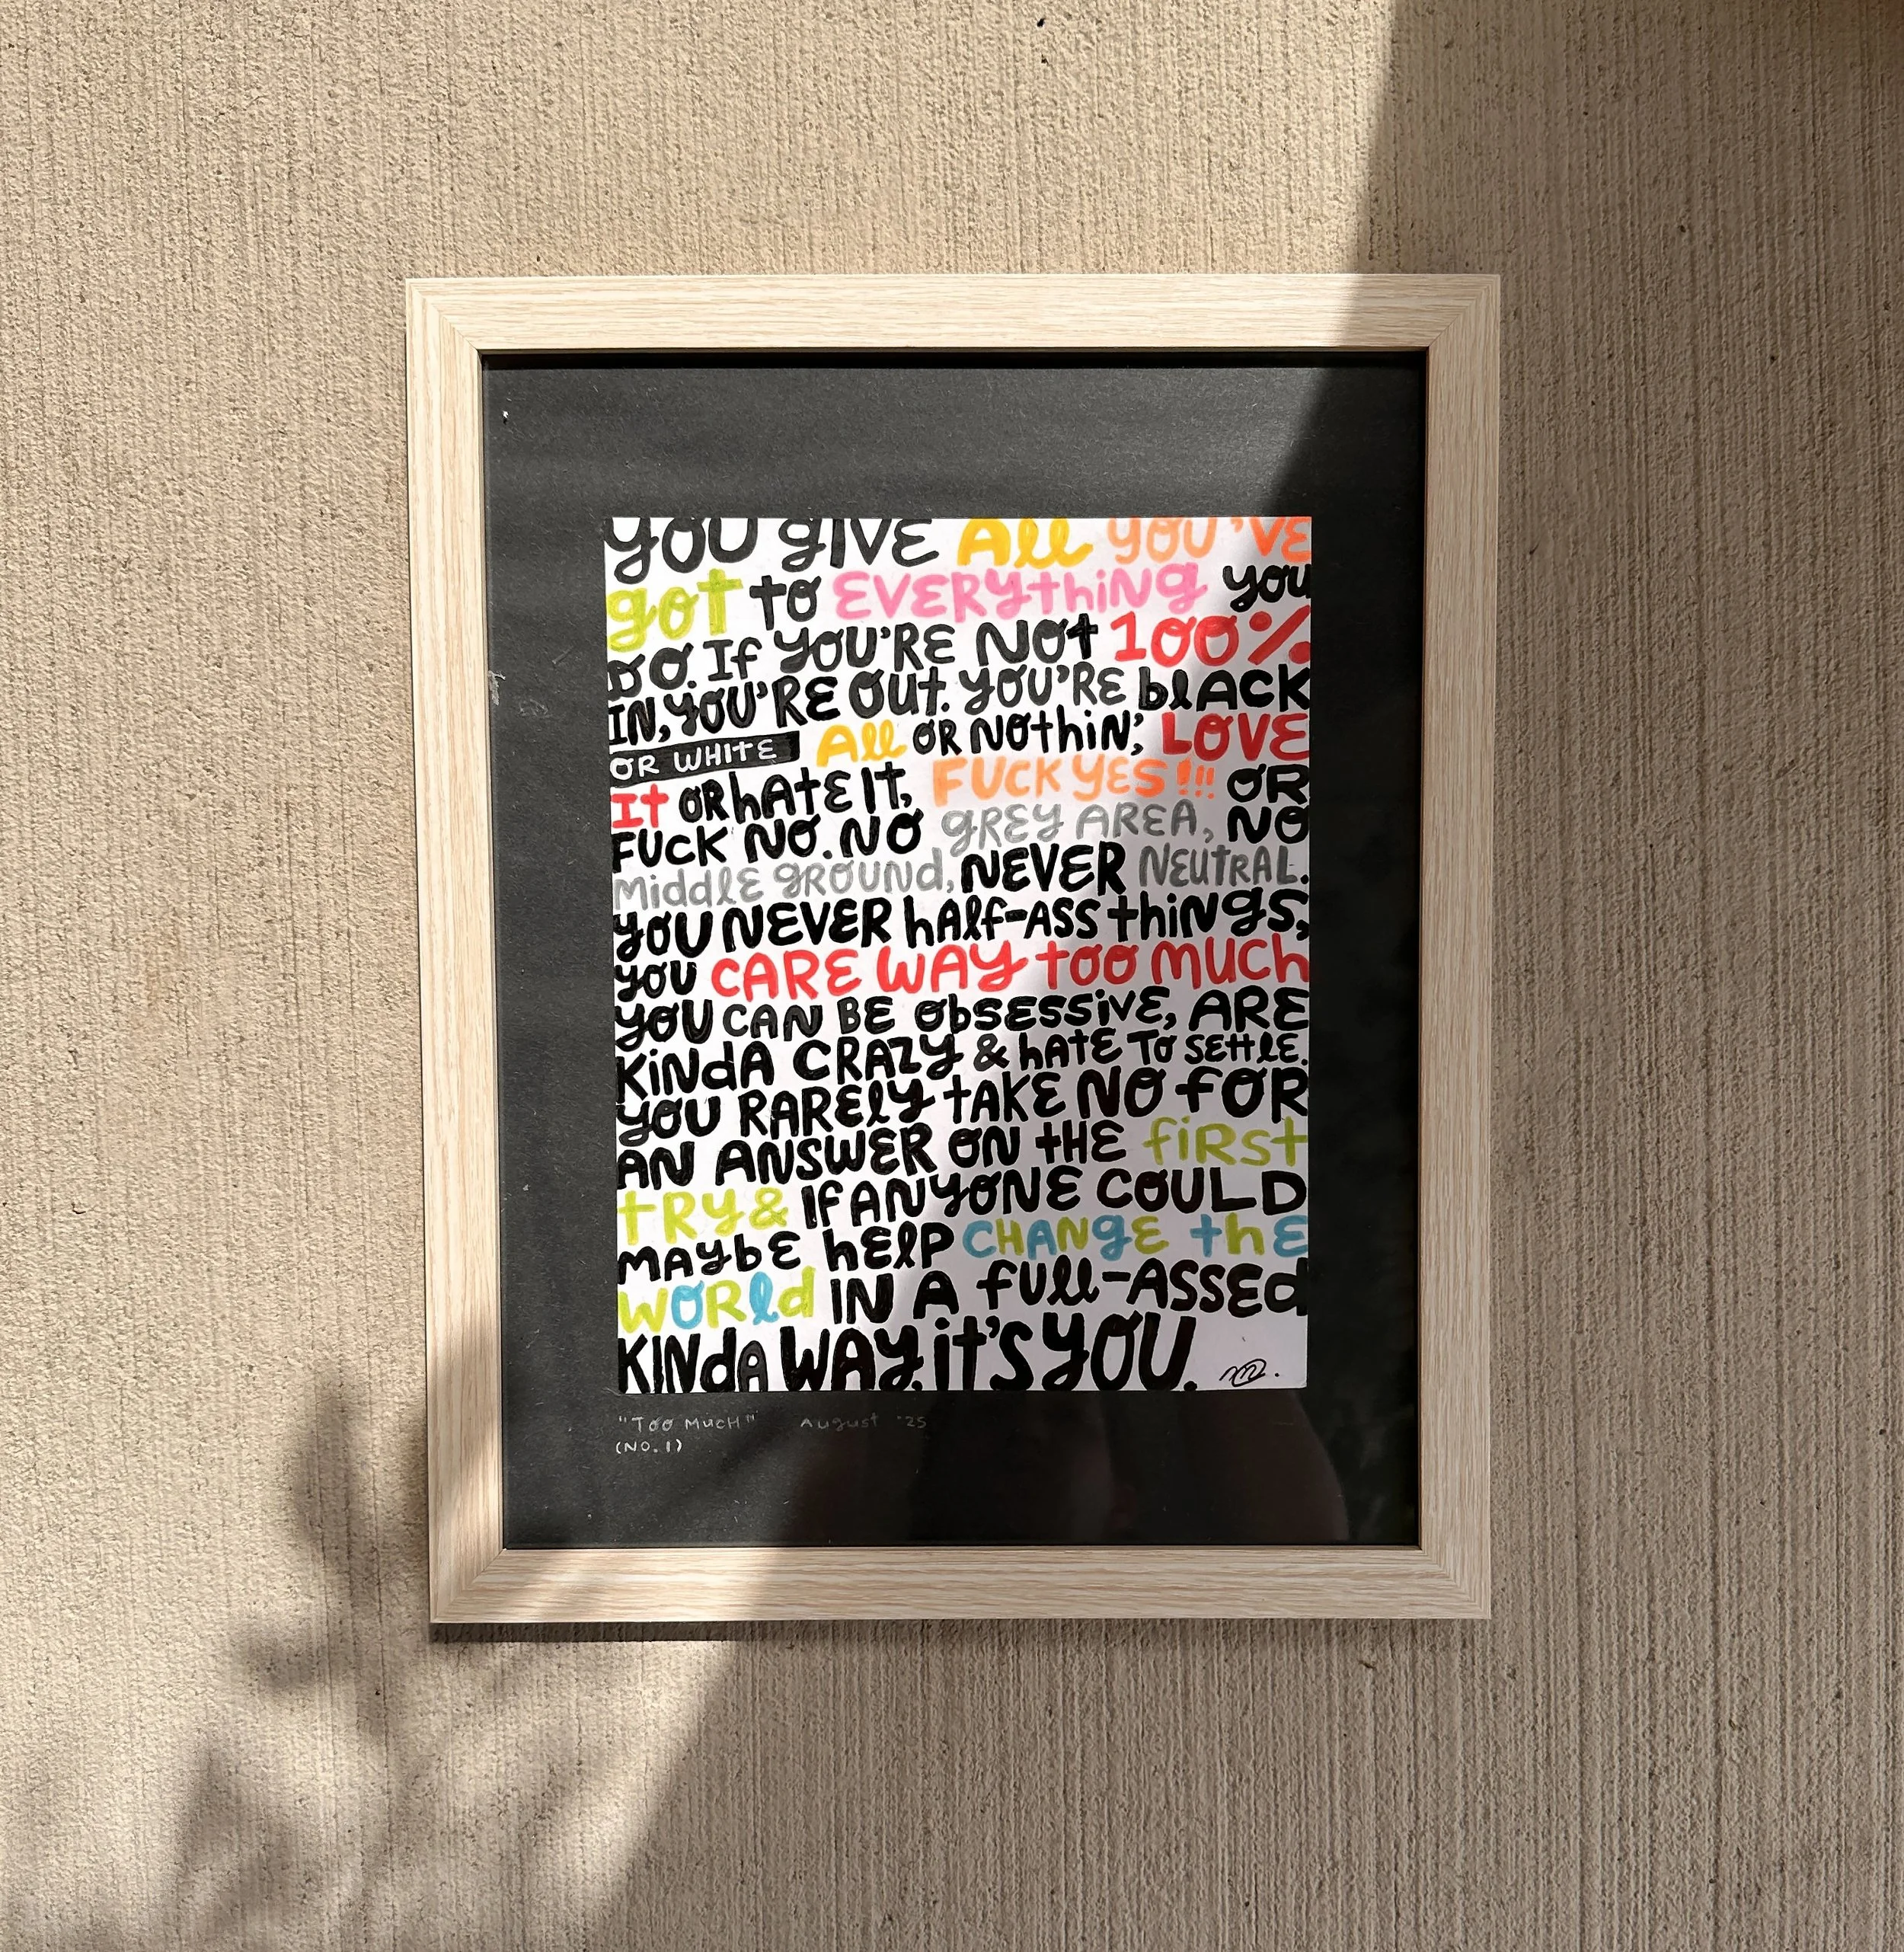 YOU GIVE All YOU'VE
got to EVERYthiNg you
DO. If YOU'RE Not 100%
IN, YOU'RE OUt. YOU'RE blACK
OR WHITE All OR NOthiN', LOVE
It OR hAtE It, FUCK YES!!! OR
FUCK NO. NO gREY AREA, NO
MiddlE gROUNd, NEVER NEUtRAL.
YOU NEVER hAlf-ASS thiNgS,
YOU CARE WAY tOO MUCh
YOU CAN BE ObSESSivE, ARE
KiNdA CRAZY & hAtE To SEttlE.
YOU RARElY tAKE NO fOR
AN ANSWER ON tHE fiRSt
tRY & If ANYONE COULD
MAYbE hElP CHANgE thE
WORld IN A full-ASSEd
KINdA WAY, it'S YOU.
"Too MucH" August '25
(NO.1)